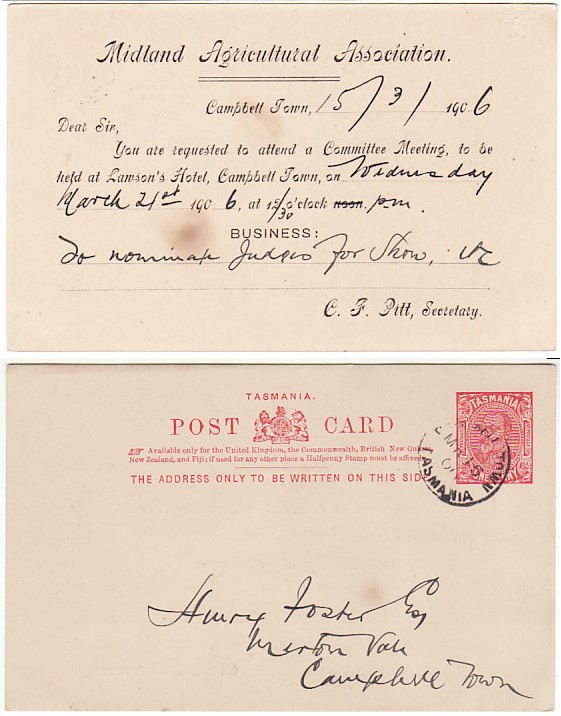 Midland Agricultural Association.
Campbell Town, 15/3/1906
Dear Sir,
You are requested to attend a Committee Meeting, to be
held at Lawson's Hotel, Campbell Town, on Wednesday
March 21st 1906, at o'clock noon. p.m.
BUSINESS:
To nominate Judges for Show, &c
C. F. Pitt, Secretary.
TASMANIA.
POST CARD
Available only for the United Kingdom, the Commonwealth, British New
New Zealand, and Fiji; if used for any other place a Halfpenny Stamp must be affixed
THE ADDRESS ONLY TO BE WRITTEN ON THIS SIDE
TASMANIA
TOWN
MR 15
TASMANIA
Henry Foster Esq
Merton Vale
Campbell Town